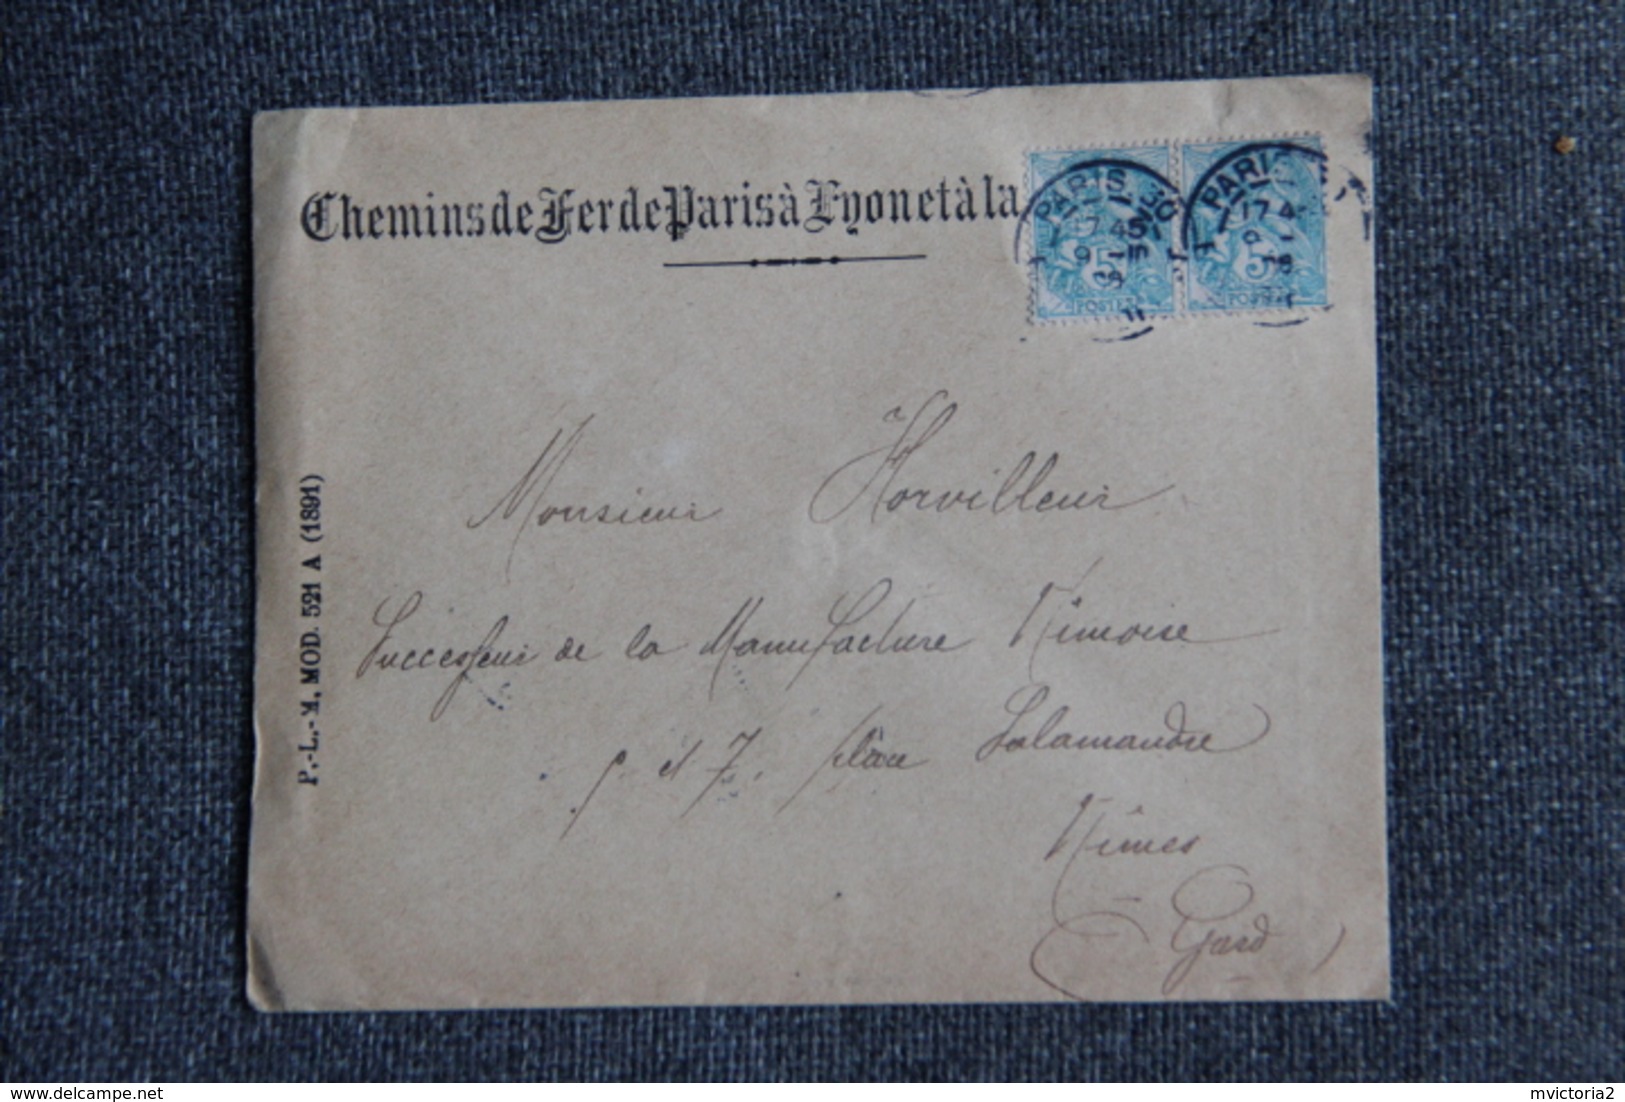 Chemins de Fer de Paris à Lyon et à la
PARIS
17 45
9 - III
08
PARIS
17 4
5
POSTES
5
POSTES
P.-L.-M. MOD. 521 A (1891)
Monsieur Horvilleur
Successeur de la Manufacture Nîmoise
5 et 7, place Salamandre
Nîmes
Gard
mvictoria2